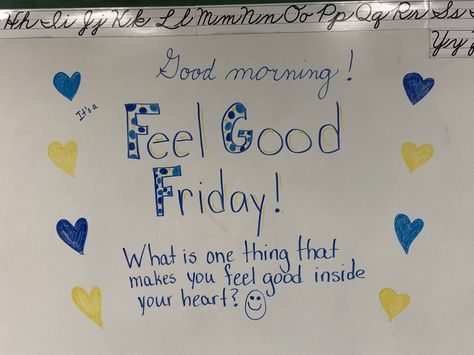 Hh Ii Jj Kk Ll Mm Nn Oo Pp Qq Rr Ss
Yy
Good morning!
It's a
Feel Good
Friday!
What is one thing that
makes you feel good inside
your heart?